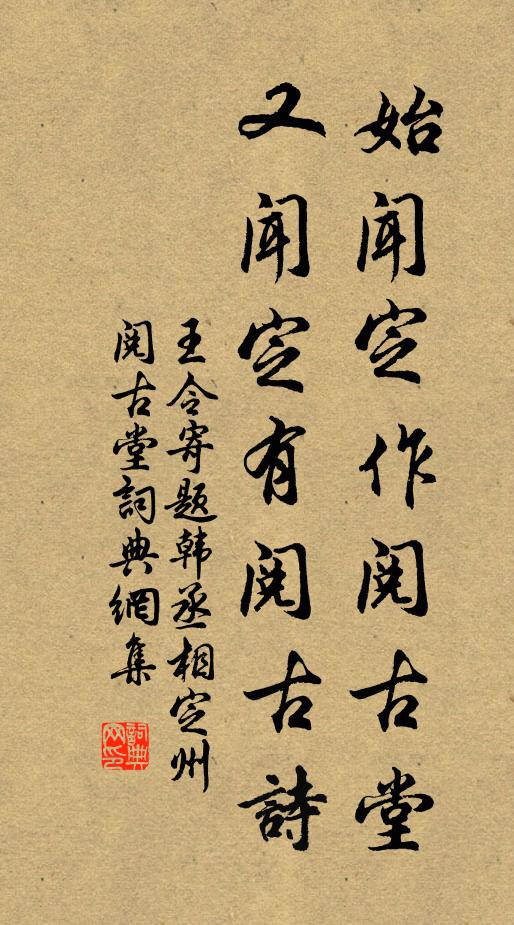 始闻定作阅古堂
又闻定有阅古詩
王令寄题韩丞相定州
阅古堂詞典網集
詞典
网印